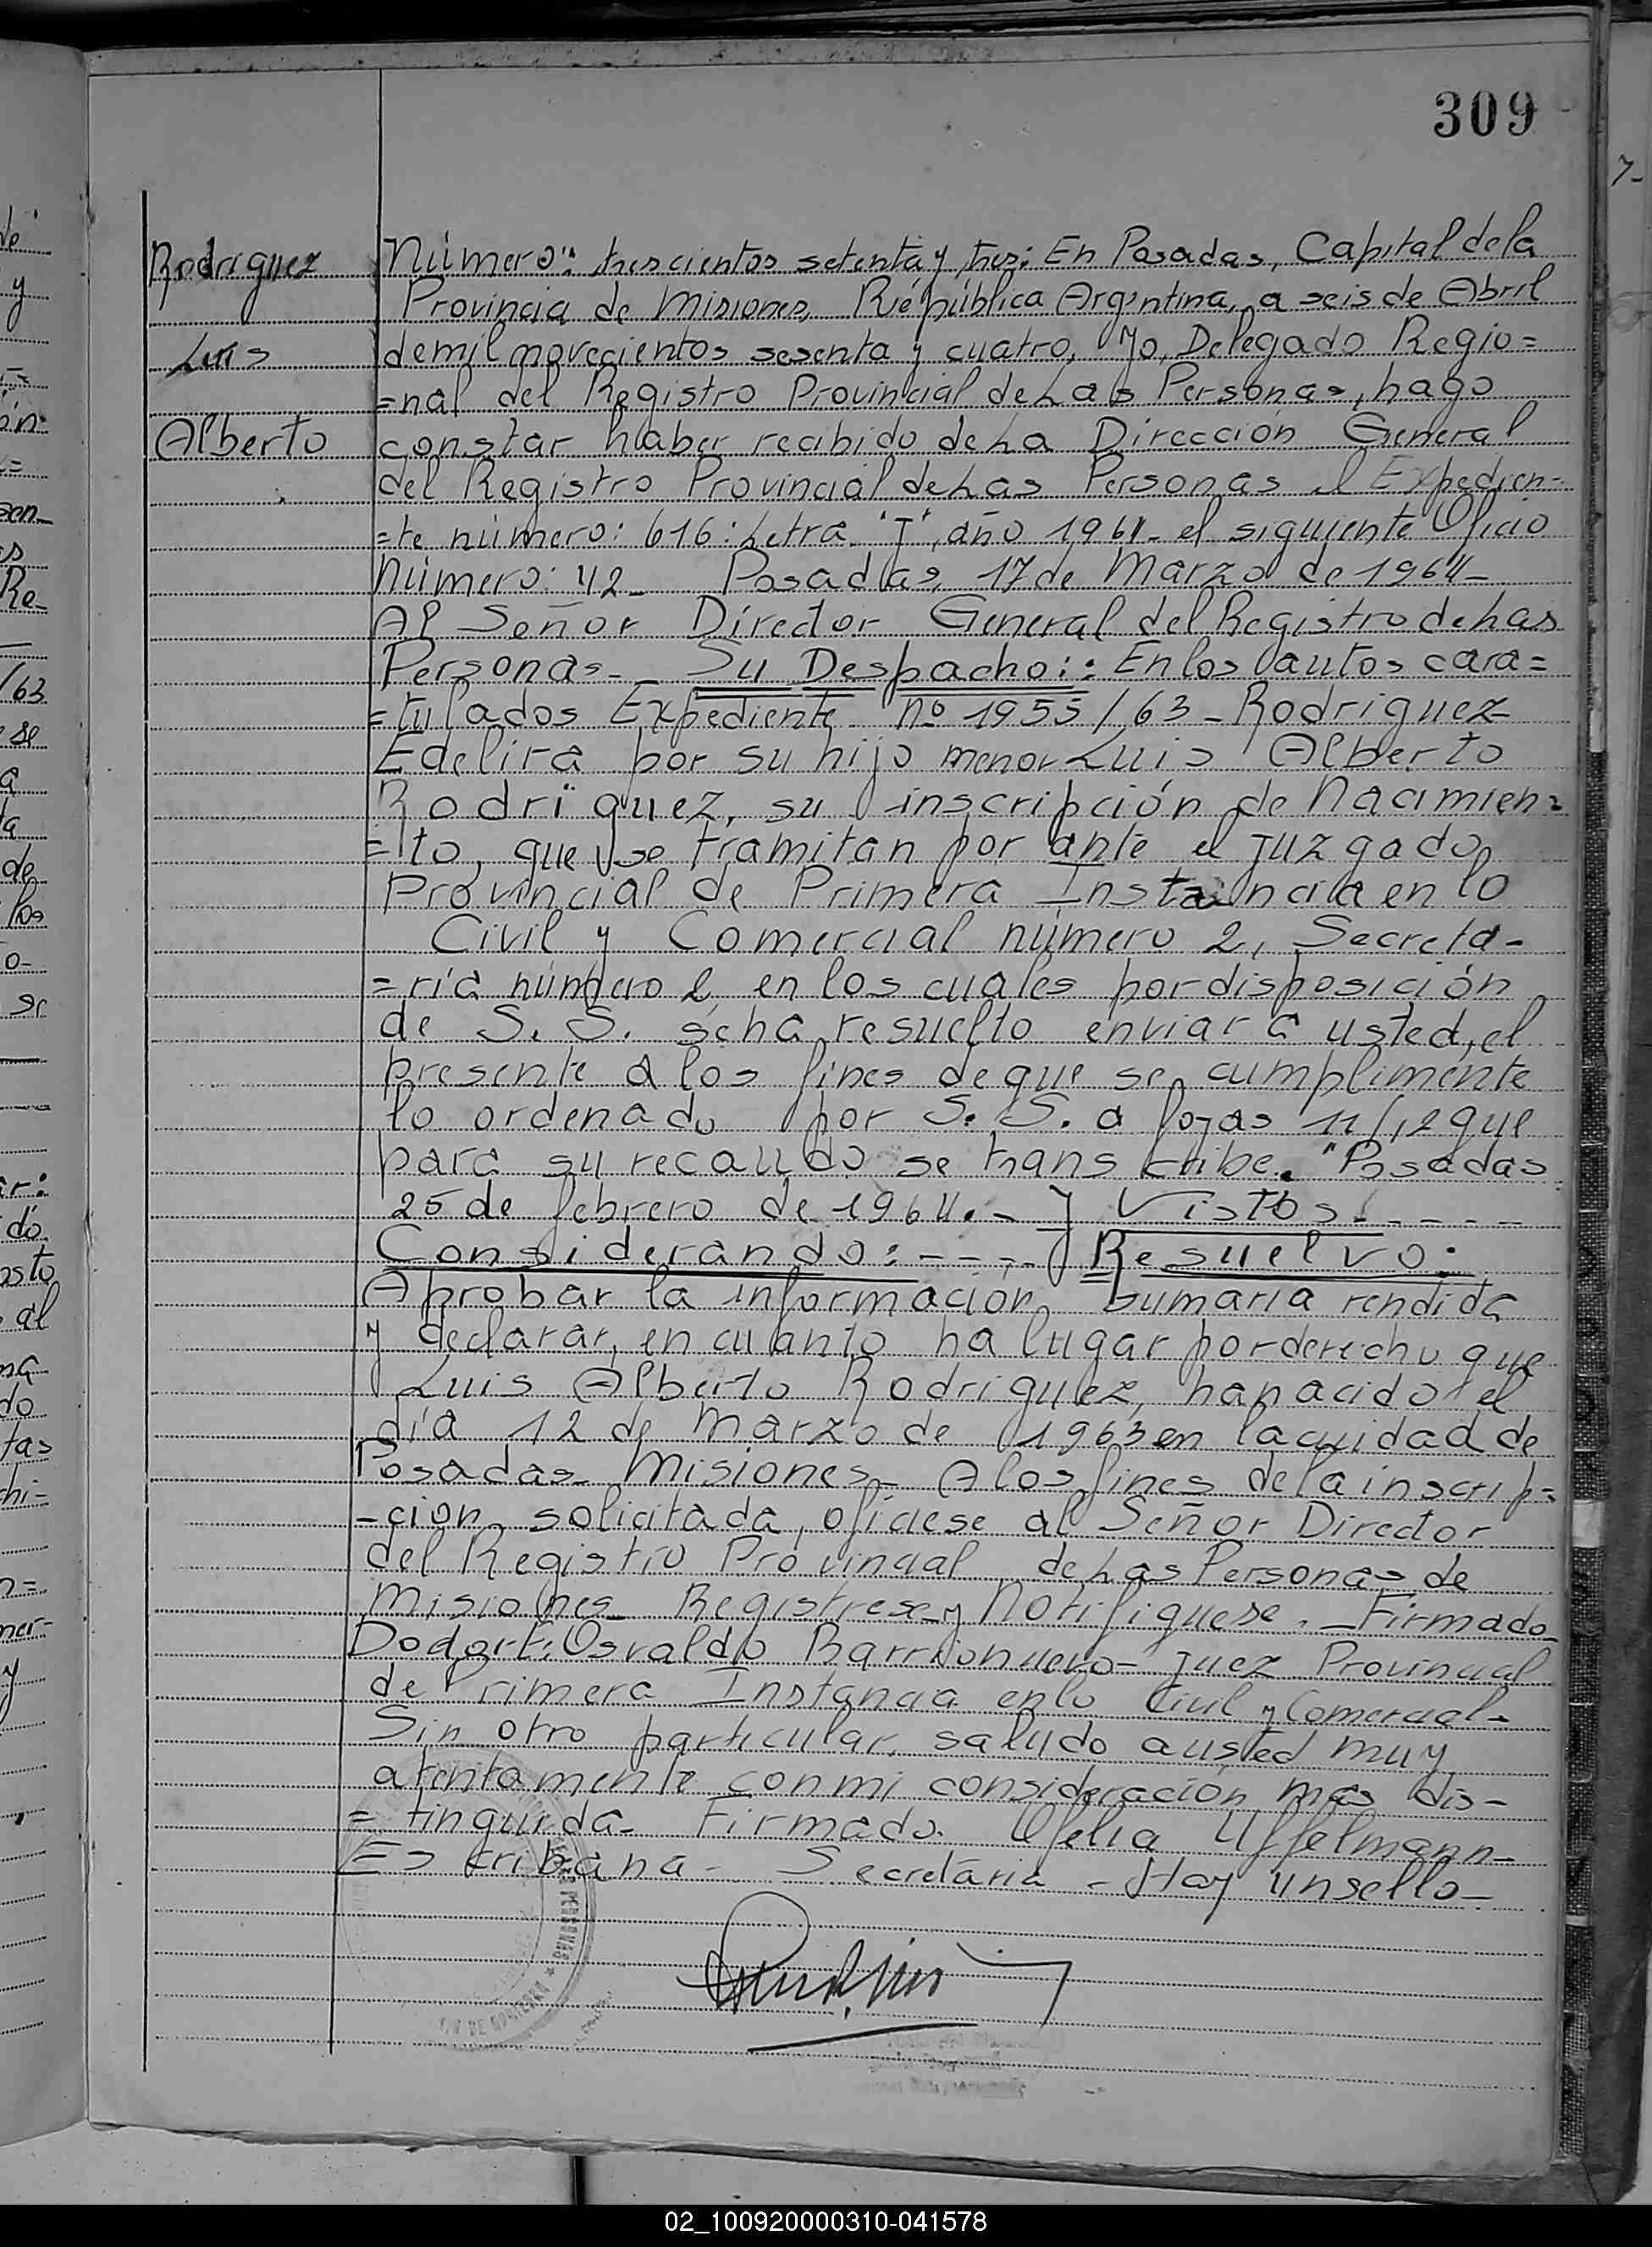 309
Rodriguez
Luis
Alberto
Número": trescientos setenta y tres: En Posadas, Capital de la
Provincia de Misiones, República Argentina, a seis de Abril
de mil novecientos sesenta y cuatro, Yo, Delegado Regio=
=nal del Registro Provincial de Las Personas, hago
constar haber recibido de La Dirección General
del Registro Provincial de Las Personas el Expedien=
=te número: 616: Letra "J", año 1964- el siguiente Oficio
Número: 42- Posadas, 17 de Marzo de 1964-
Al Señor Director General del Registro de Las
Personas- Su Despacho:: En los autos cara=
=tulados Expediente nº 1955/63- Rodriguez
Edelira por su hijo menor Luis Alberto
Rodríguez, su inscripción de Nacimien=
=to, que se tramitan por ante el Juzgado
Provincial de Primera Instancia en lo
Civil y Comercial número 2, Secreta-
=ría número 2, en los cuales por disposición
de S. S. se ha resuelto enviar a usted, el
presente a los fines de que se cumplimente
lo ordenado por S. S. a fojas 11/12 que
para su recaudo se transcribe. "Posadas
25 de febrero de 1964.- y Vistos.-----
Considerando:---- y Resuelvo:
Aprobar la información sumaria rendida
y declarar, en cuanto ha lugar por derecho que
Luis Alberto Rodriguez, ha nacido el
día 12 de Marzo de 1963 en la cuidad de
Posadas- Misiones- A los fines de la inscrip=
-ción solicitada, ofíciese al Señor Director
del Registro Provincial de Las Personas de
Misiones- Registrese y Notifiquese.- Firmado
Osvaldo Barrionuevo- Juez Provincial
de Primera Instancia en lo Civil y Comercial-
Sin otro particular, saludo a usted muy
atentamente con mi consideración mas dis-
=tinguida- Firmado. Ofelia Uffelmann-
Escribana- Secretaria - Hay un sello-
02_100920000310-041578